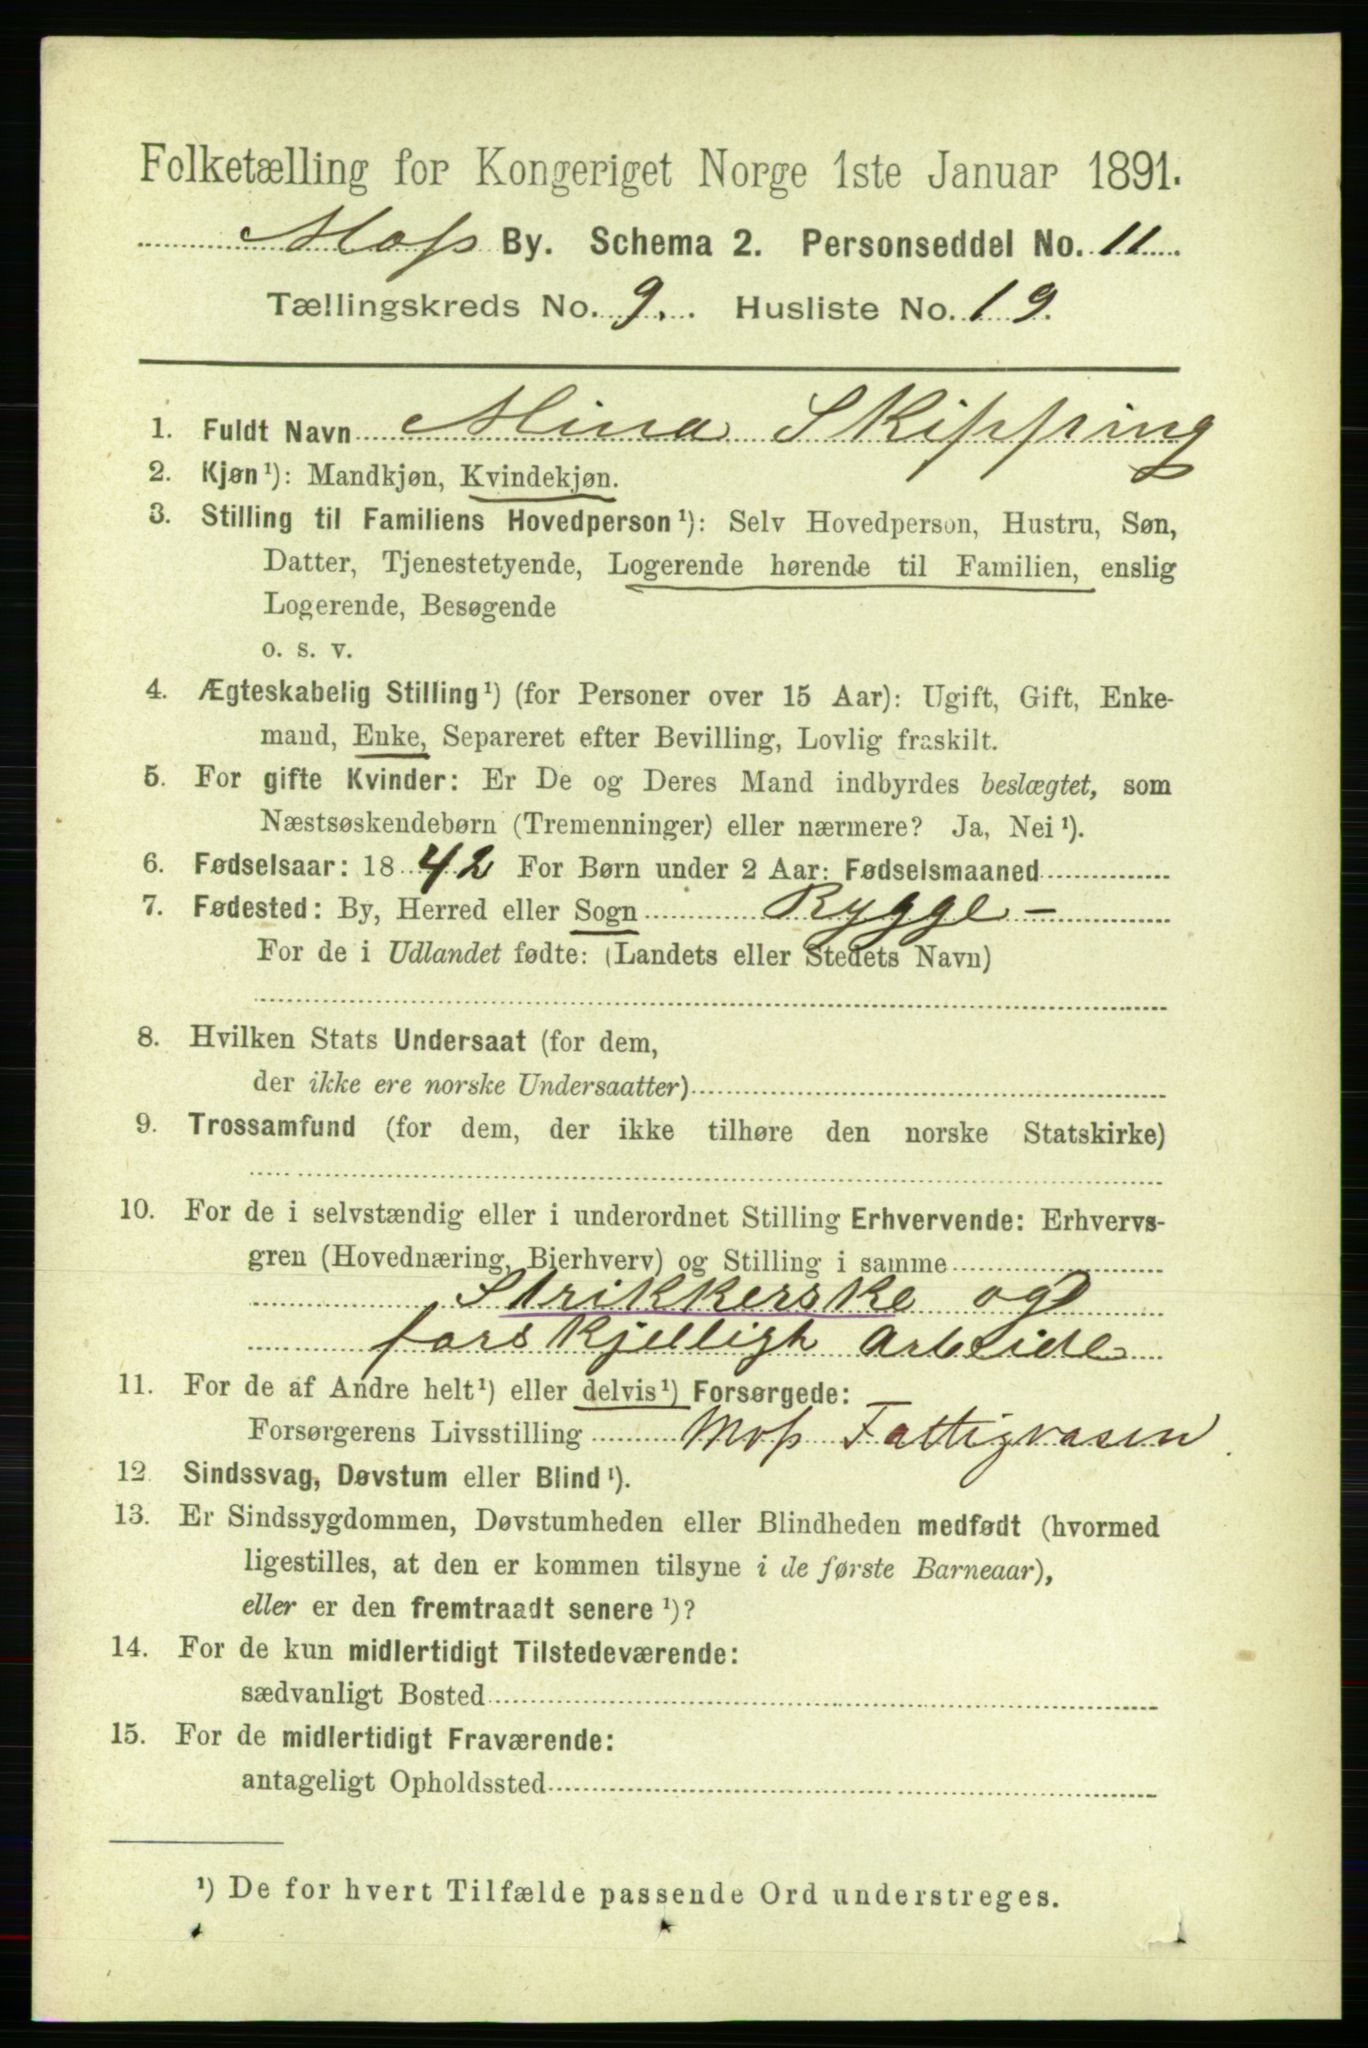 Folketælling for Kongeriget Norge 1ste Januar 1891.
Moss By. Schema 2. Personseddel No. 11
Tællingskreds No. 9. Husliste No. 19.
1. Fuldt Navn Mina Skipping
2. Kjøn¹): Mandkjøn, Kvindekjøn.
3. Stilling til Familiens Hovedperson¹): Selv Hovedperson, Hustru, Søn,
Datter, Tjenestetyende, Logerende hørende til Familien, enslig
Logerende, Besøgende
o. s. v.
4. Ægteskabelig Stilling¹) (for Personer over 15 Aar): Ugift, Gift, Enke-
mand, Enke, Separeret efter Bevilling, Lovlig fraskilt.
5. For gifte Kvinder: Er De og Deres Mand indbyrdes beslægtet, som
Næstsøskendebørn (Tremenninger) eller nærmere? Ja, Nei¹).
6. Fødselsaar: 1842 For Børn under 2 Aar: Fødselsmaaned
7. Fødested: By, Herred eller Sogn Rygge -
For de i Udlandet fødte: (Landets eller Stedets Navn)
8. Hvilken Stats Undersaat (for dem,
der ikke ere norske Undersaatter)
9. Trossamfund (for dem, der ikke tilhøre den norske Statskirke)
10. For de i selvstændig eller i underordnet Stilling Erhvervende: Erhvervs-
gren (Hovednæring, Bierhverv) og Stilling i samme
Strikkerske og
forskjelligh Arbeide
11. For de af Andre helt¹) eller delvis¹) Forsørgede:
Forsørgerens Livsstilling Moss Fattigvasen
12. Sindssvag, Døvstum eller Blind¹).
13. Er Sindssygdommen, Døvstumheden eller Blindheden medfødt (hvormed
ligestilles, at den er kommen tilsyne i de første Barneaar),
eller er den fremtraadt senere¹)?
14. For de kun midlertidigt Tilstedeværende:
sædvanligt Bosted
15. For de midlertidigt Fraværende:
antageligt Opholdssted
¹) De for hvert Tilfælde passende Ord understreges.